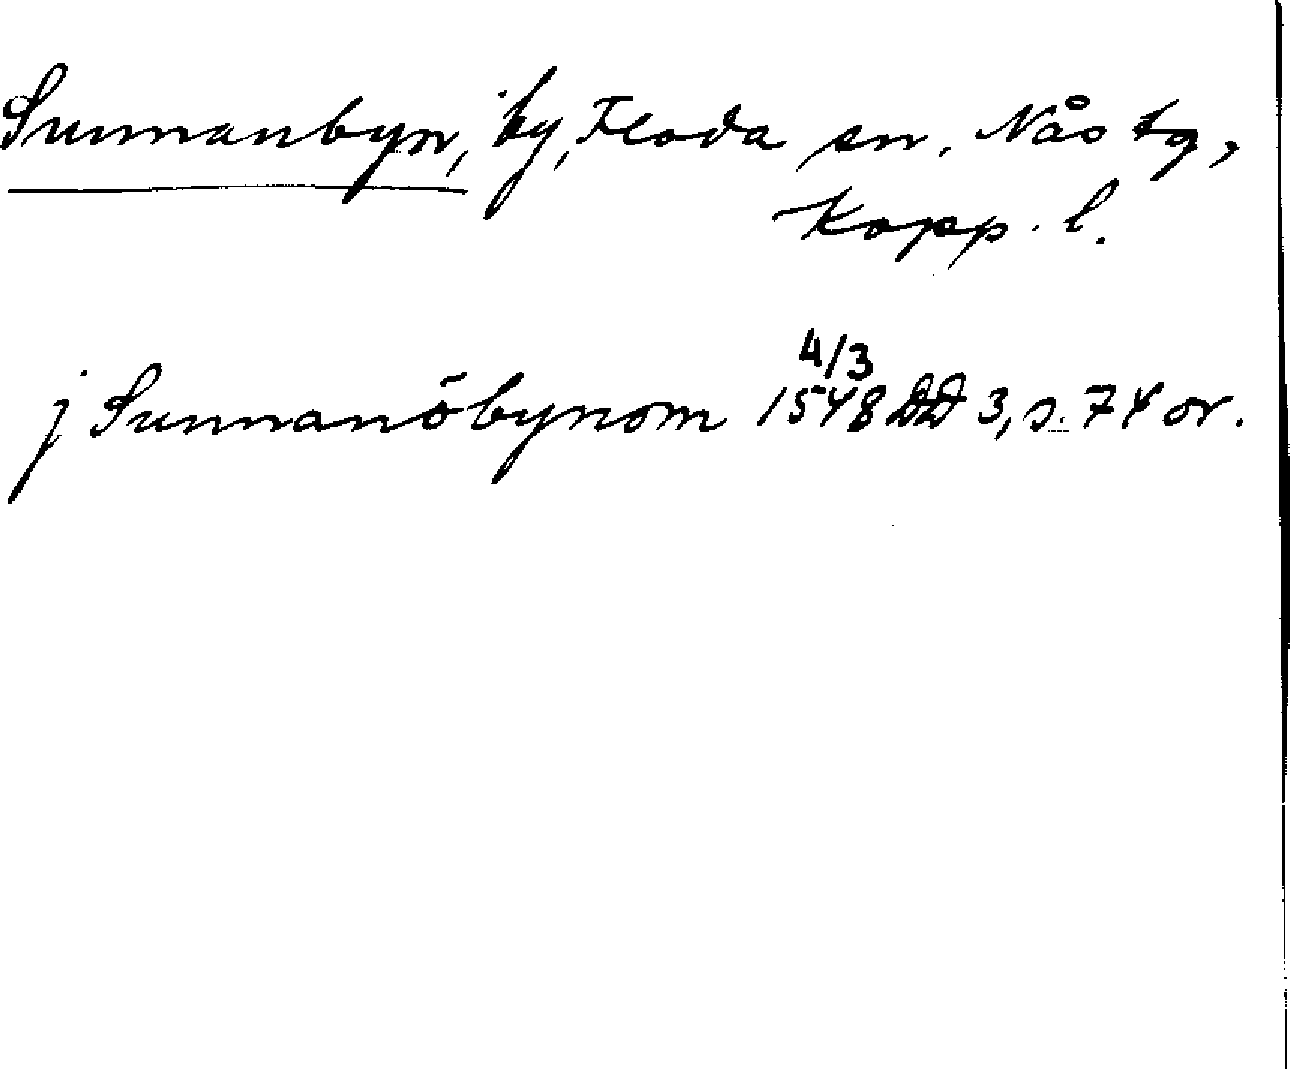 Sunnanbyn, by, Floda sn, Nås tg,
Kopp. l.
4/3
j Sunnanöbynom 1548 DD 3, s. 74 or.